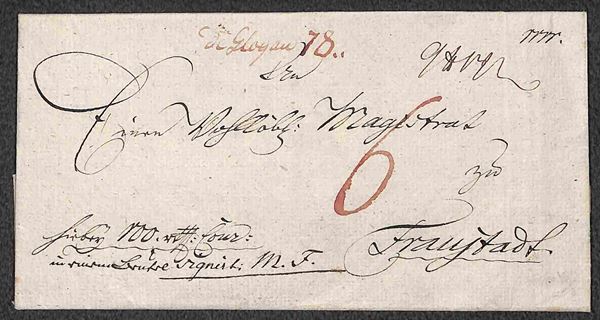 de Glogau 78..
An
Einen Wohllöbl: Magistrat
6
zu
Fraustadt.
hiebey 100. rtl: Cour:
in einem Beutel Signirt: M. F.